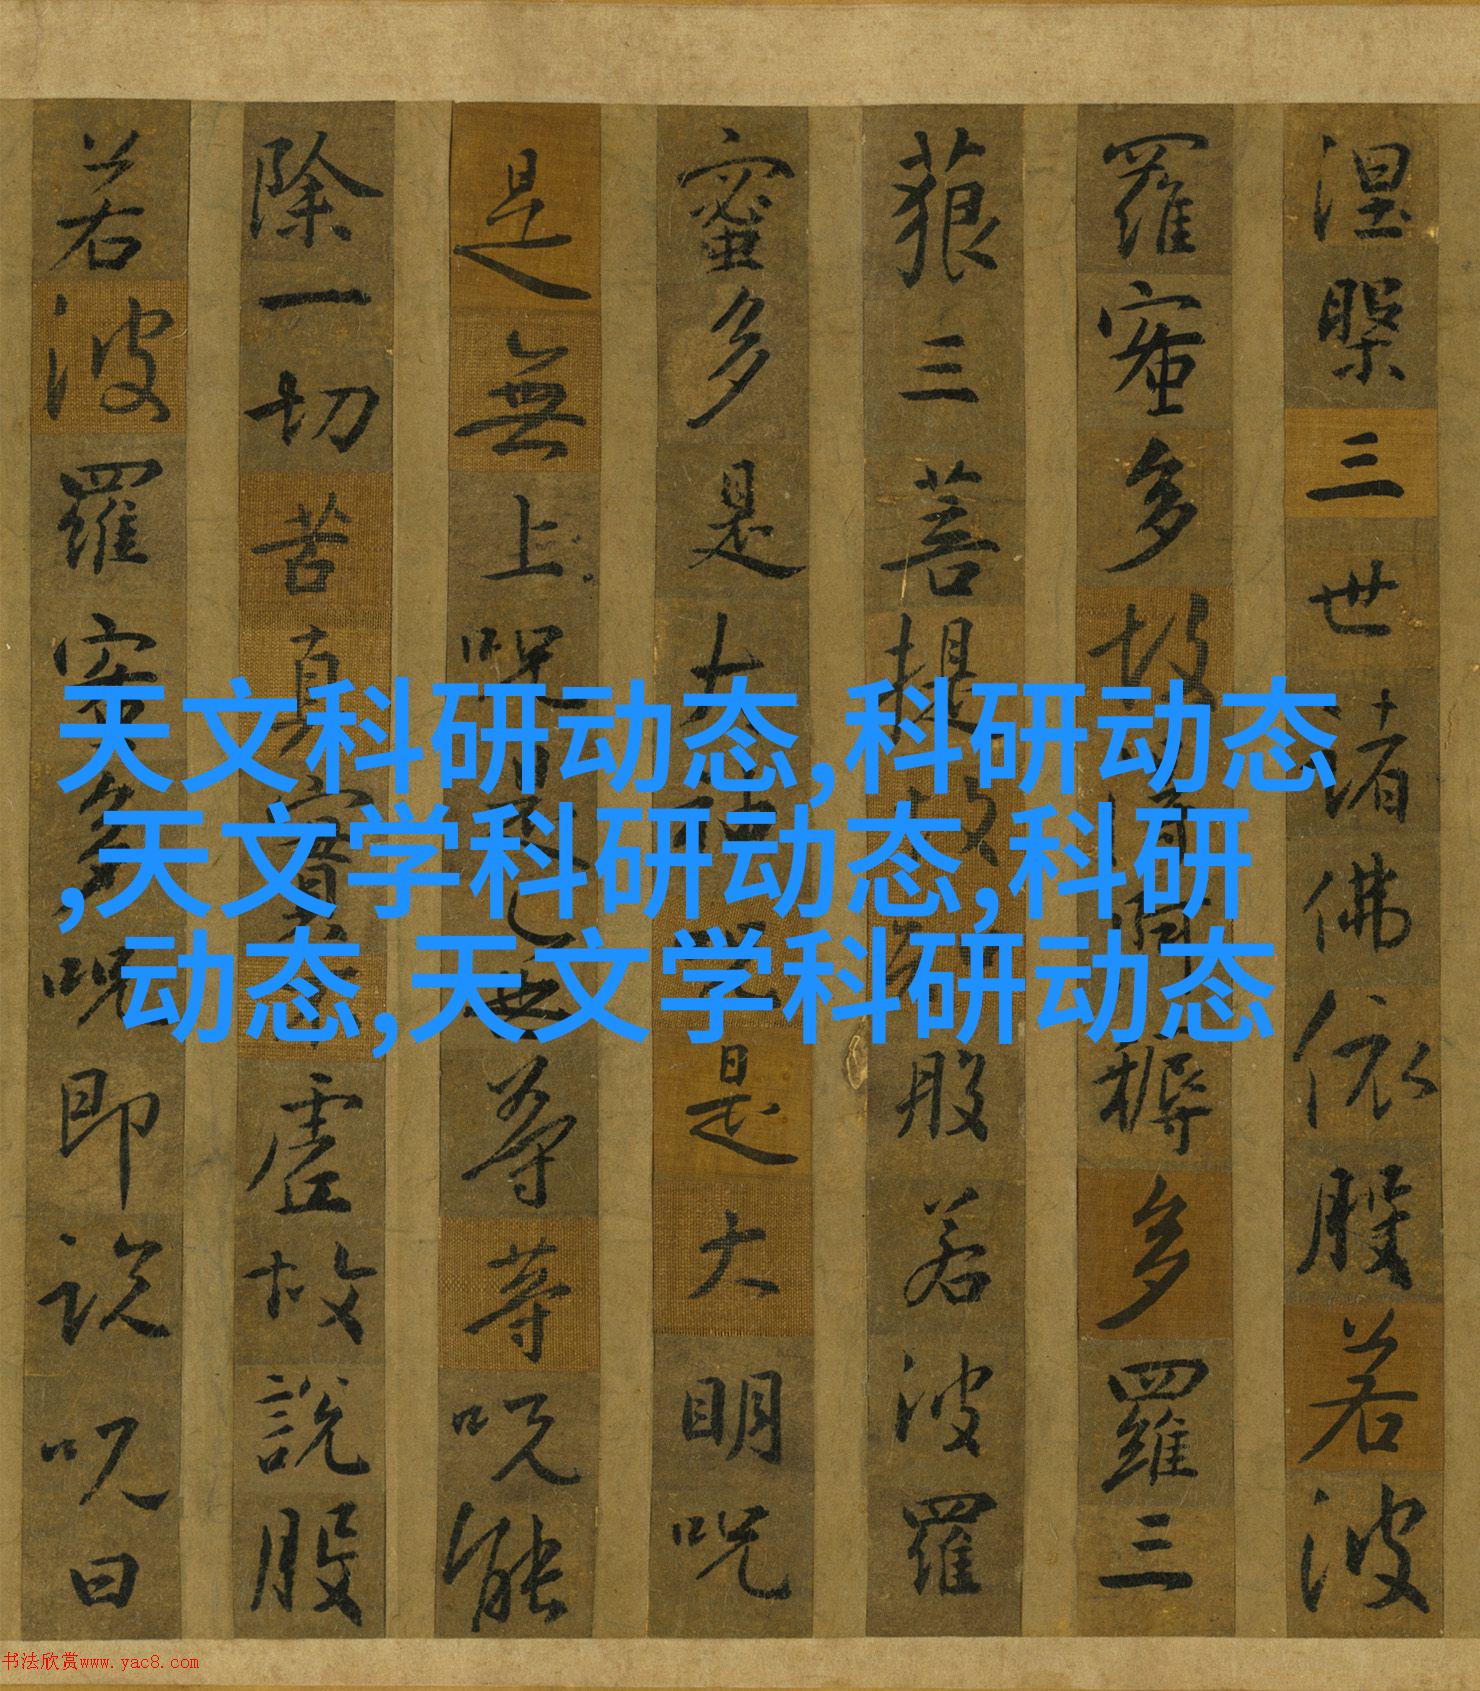 天文科研动态,科研动态
,天文学科研动态,科研
动态,天文学科研动态
涅槃三世諸佛依般若波
羅蜜多故得阿耨多羅三
藐三菩提故知般若波羅
蜜多是大神咒是大明咒
是無上咒是無等等咒能
除一切苦真實不虛故說般
若波羅蜜多咒即說咒曰
书法欣赏www.yac8.com